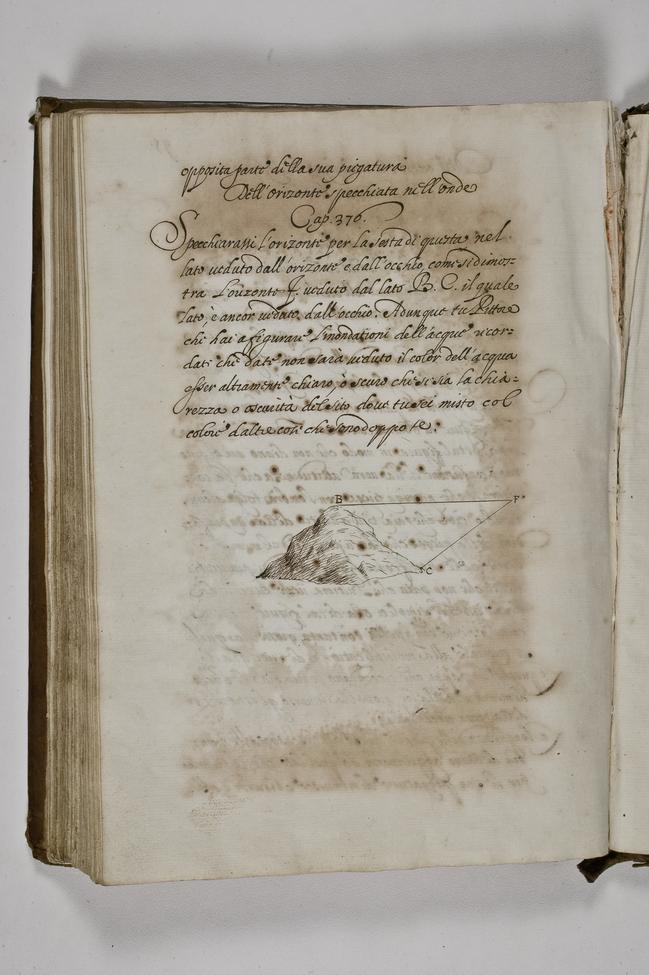 opposita parte della sua piegatura
Dell'orizonte specchiata nell'onde
Cap. 376.
Specchiarassi l'orizonte per la sesta di questa nel
lato ueduto dall'orizonte e dall'occhio, come si dimos=
tra l'orizonte F. ueduto dal lato B. C. il quale
lato, è ancor ueduto, dall'occhio. Adunque tu Pittore
che hai a figurare l'inondationi dell'acque ricor=
dati che da te non sarà ueduto il color dell'acqua
esser altramente chiaro, ò scuro che si sia la chia=
rezza o oscurità del sito doue tu sei misto col
colore d'altre cose che sono doppo te.
B
F
C